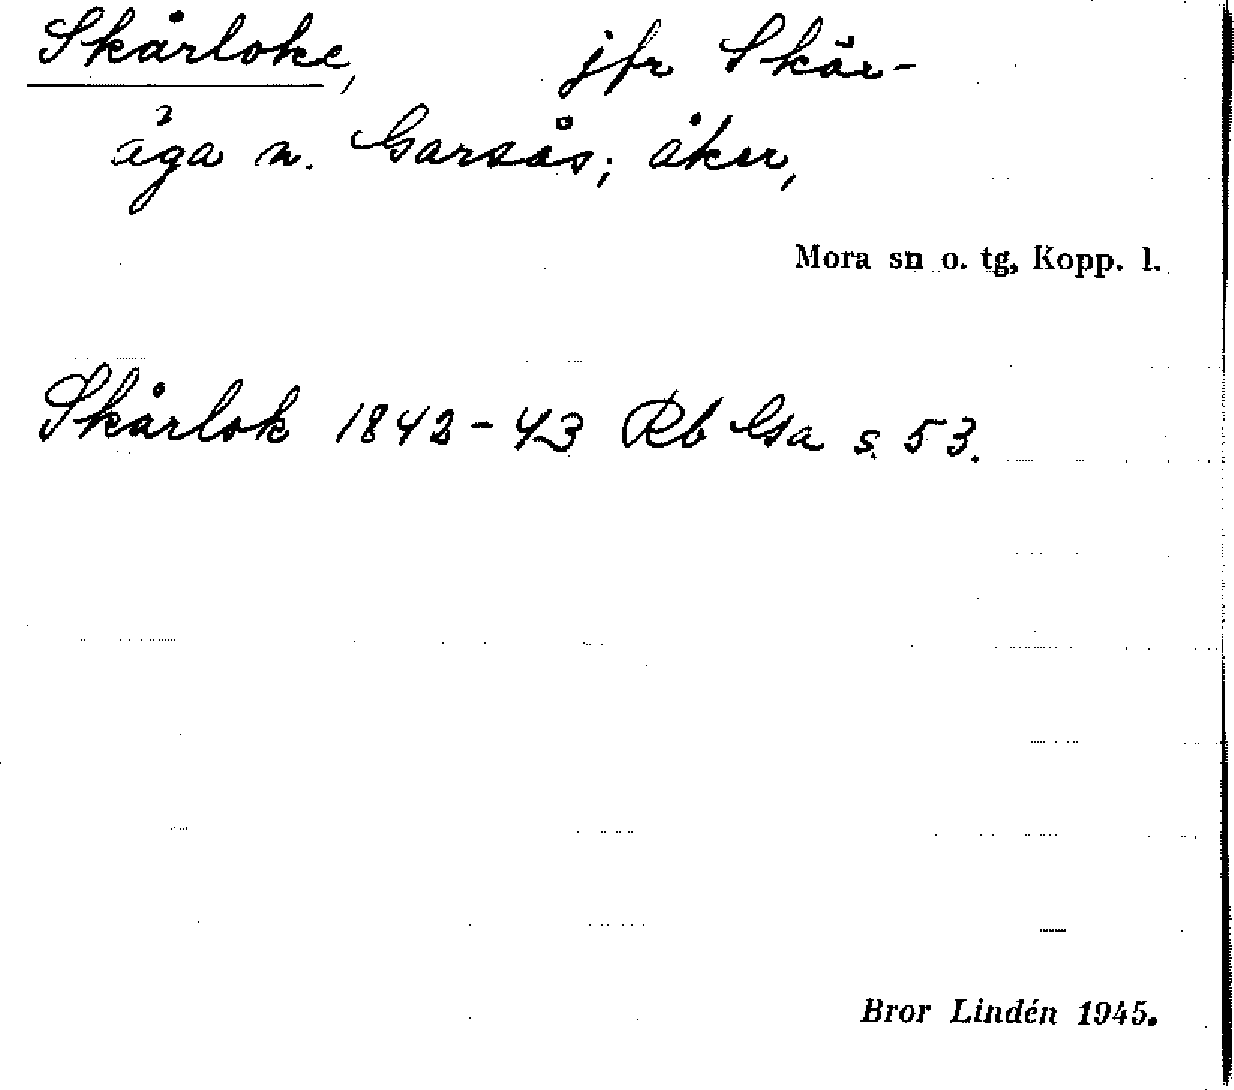 Skårloke, jfr Skär-
åga n. Garsås; åker,
Mora sn o. tg, Kopp. l.
Skårlok 1842-43 Rb Gsa s. 53.
Bror Lindén 1945.